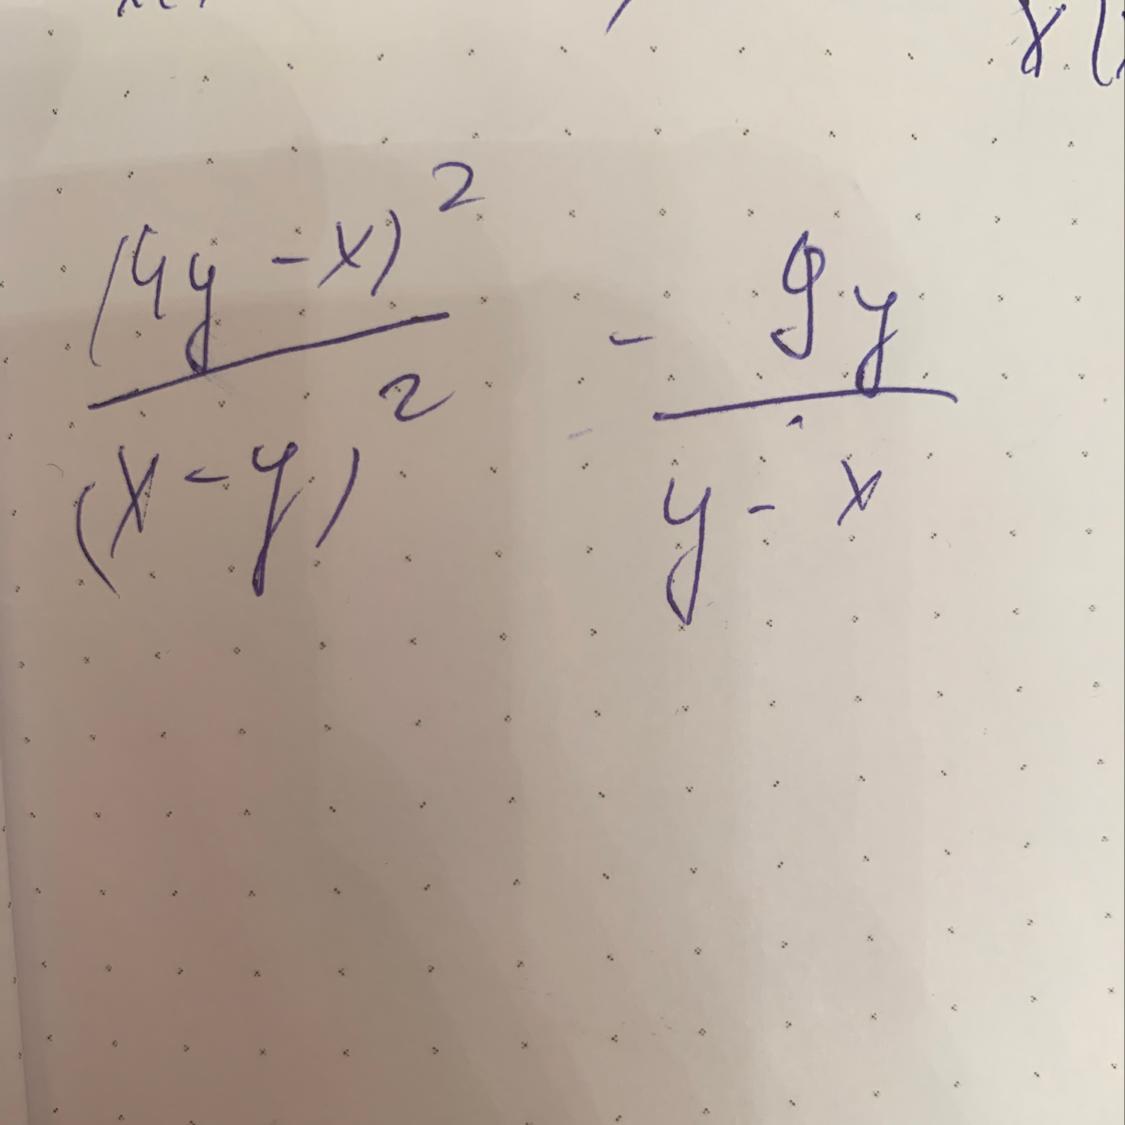 (4y - x)² / (x - y)² - 9y / (y - x)